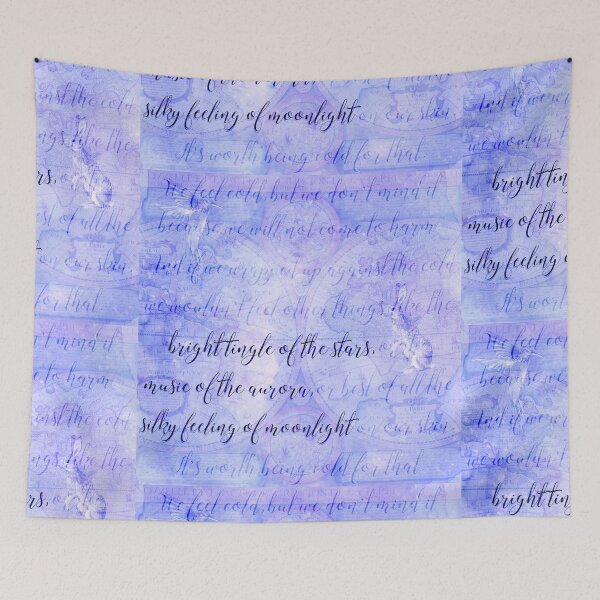 inst the cold
ngs, like the
rs, or the
best of all the
on our skin.
for that.
n't mind it
e to harm
inst the cold
ngs, like the
rs, or the
silky feeling of moonlight on our skin.
It's worth being cold for that.
We feel cold, but we don't mind it
because, we will not come to harm
And if we wrapped up against the cold
we wouldn't feel other things, like the
bright tingle of the stars, or the
music of the aurora, or best of all the
silky feeling of moonlight on our skin.
It's worth being cold for that
We feel cold, but we don't mind it
And if we wr
we wouldn't
bright ting
music of the
silky feeling o
It's worth
because, we
And if we wr
we wouldn't
bright ting